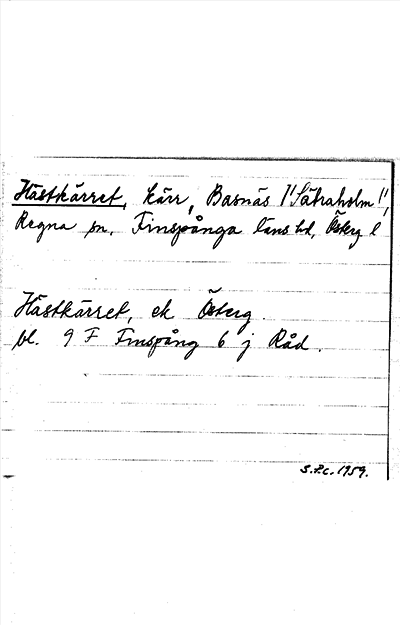 Hästkärret, kärr, Basnäs ("Sätraholm"),
Regna sn, Finspånga läns hd, Österg l
Hästkärret, ek Österg.
bl. 9 F Finspång 6 j Råd.
S.P.C. 1959.